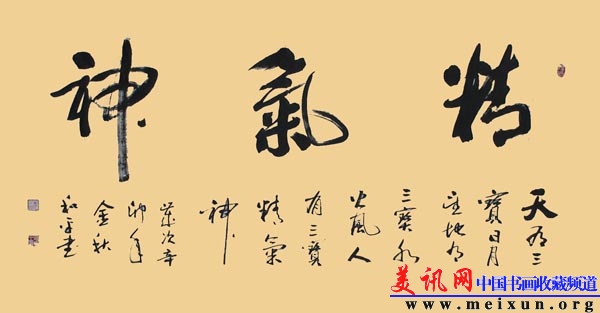 精氣神
天有三
寶日月
星地有
三寶水
火風人
有三寶
精氣
神
歲次辛
卯年
金秋
和平书
美讯网 中国书画收藏频道
www.meixun.org